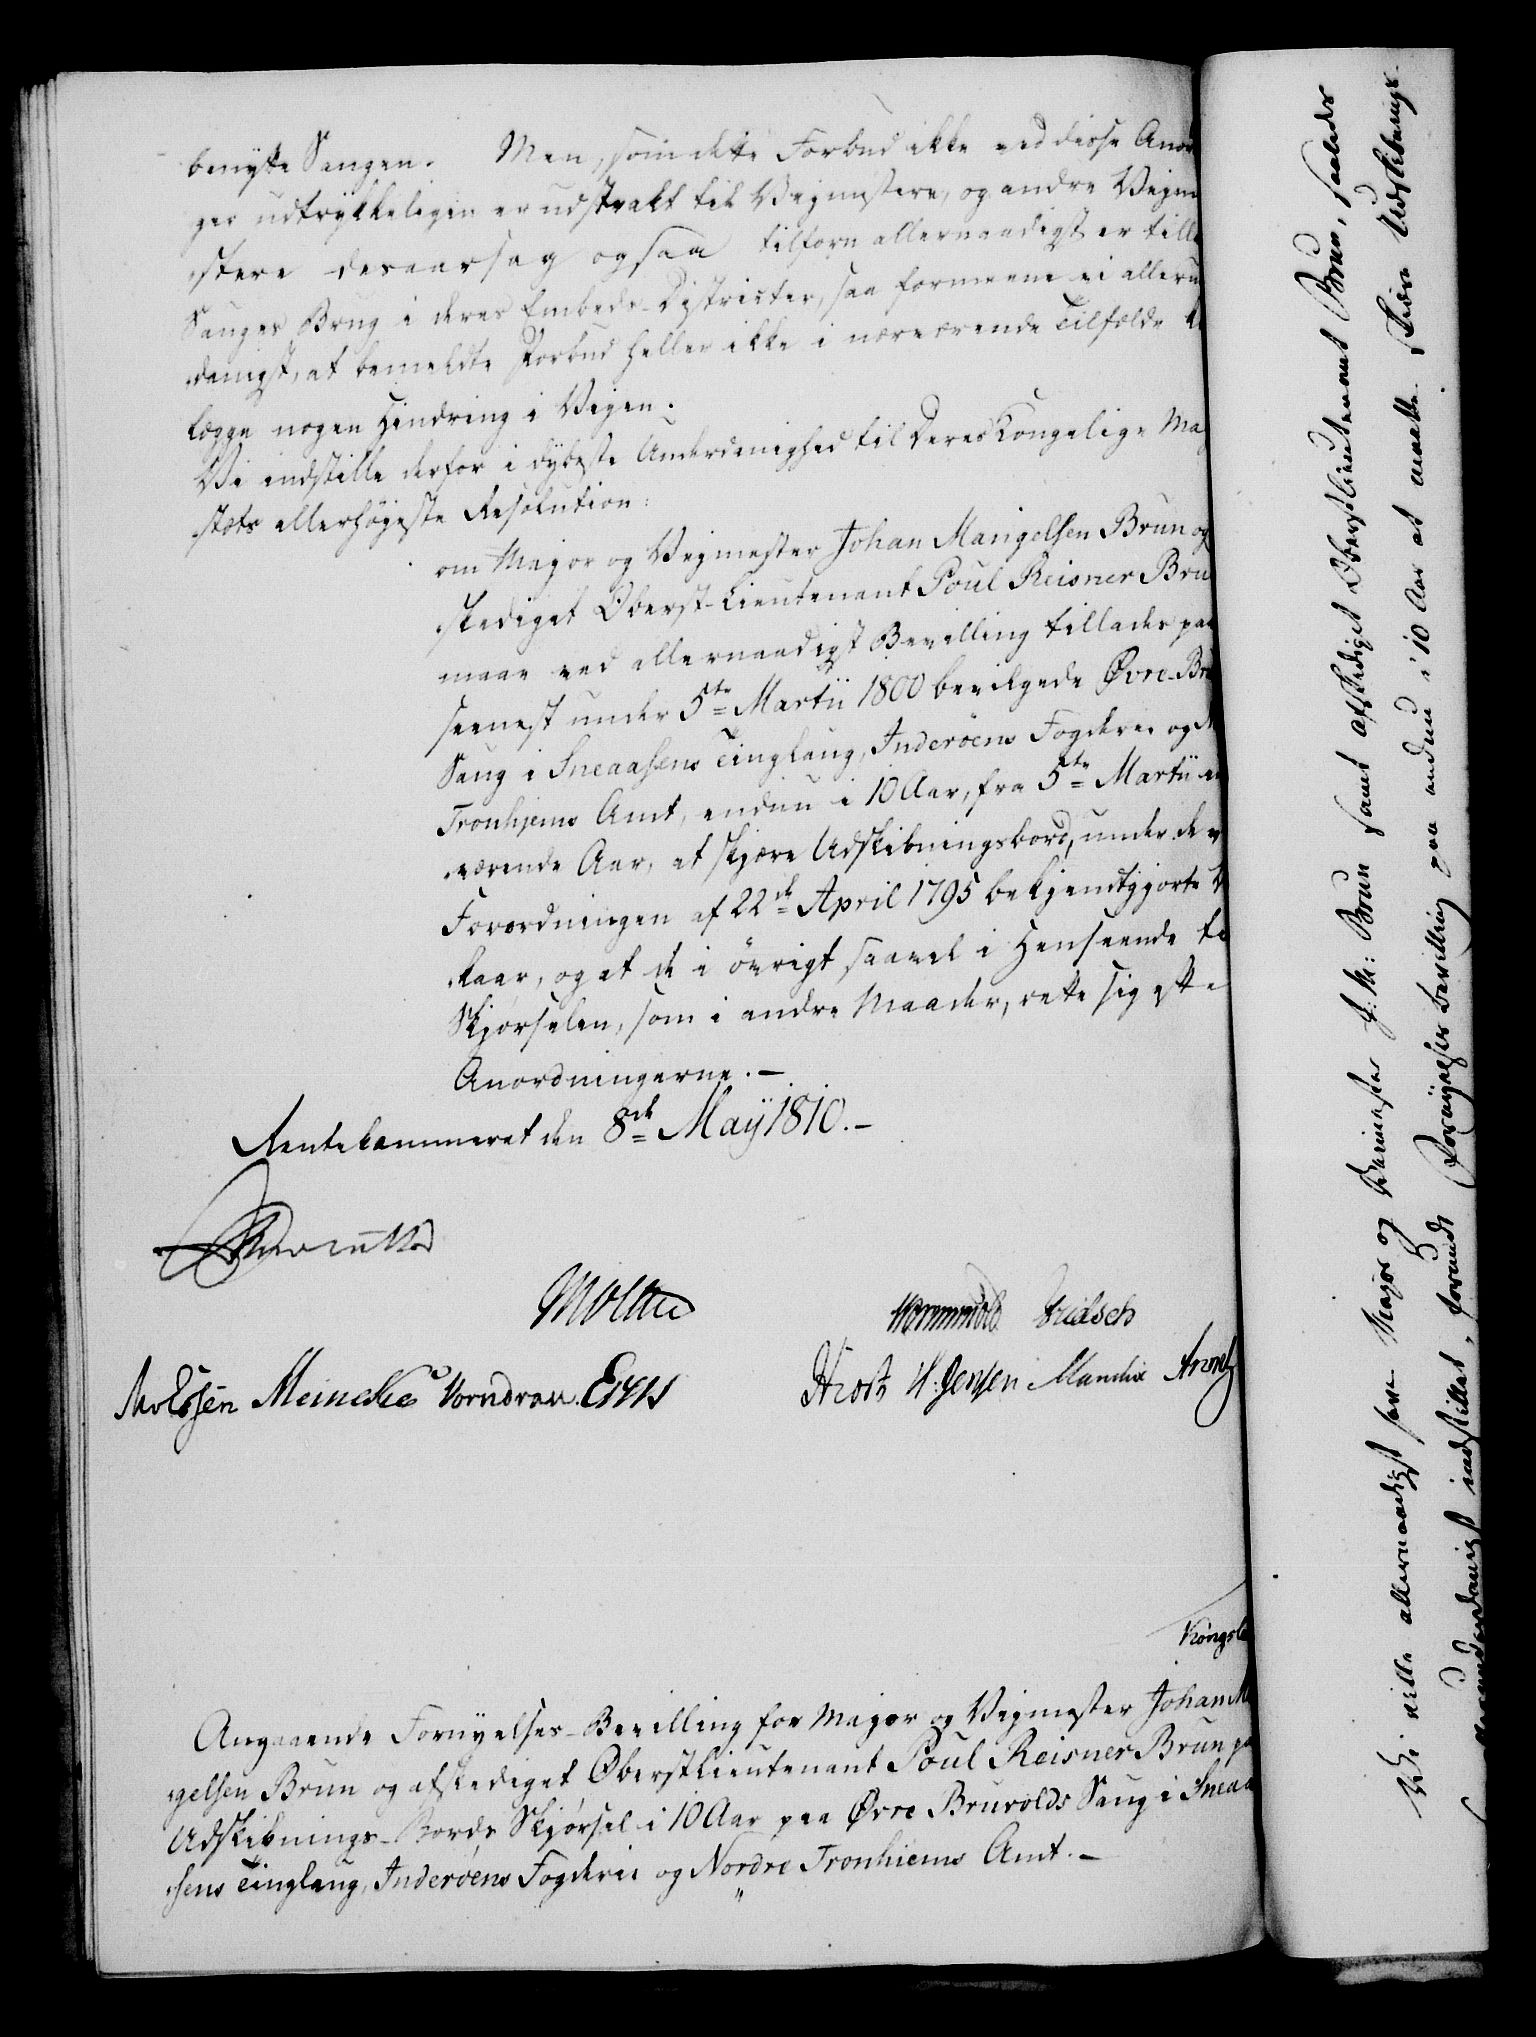 benytte Saugen. Men, som dette Forbud ikke ved disse Anord
ger udtrykkeligen er udstrakt til Vejmestere, og andre Vejm
stere desaarsag ogsaa tilforn allernaadigst er till
Sauges Brug i deres Embeds-Districter, saa formeene vi alleru
danigst, at bemeldte Forbud heller ikke i nærværende Tilfælde
lægge nogen Hindring i Vejen.
Vi indstille derfor i dybeste Underdanighed til Deres Kongelige Ma
stæts allerhøyeste Resolution:
om Major og Vejmester Johan Mangelsen Brun og
skediget Oberst-Lieutenant Poul Reisner Bru
maae ved allernaadigst Bevilling tillades paa
seenest under 5te Martii 1800 bevilgede Øvre-Bru
Saug i Sneaasens Tinglaug, Inderøens Fogderie og N
Tronhjems Amt, endnu i 10 Aar, fra 5te Martii
værende Aar, at skjære Udskibningsbord, under de v
Forordningen af 22de April 1795 bekjendtgjorte V
kaar, og at de i øvrigt saavel i Henseende ti
Skjørselen, som i andre Maader, rette sig efte
Anordningerne. —
Rentekammeret den 8de Maÿ 1810. —
Moltke
Wormskiold Fridsch
Meincke Vorndran. Eyes
Hrost H: Jensen Mandix
Kongsb
Angaaende Fornyelses-Bevilling for Major og Vejmester Johan M
gelsen Brun og afskediget Oberstlieutenant Poul Reisner Brun pa
Udskibnings-Bords Skjørsel i 10 Aar paa Øvre Bruvolds Saug i Sneaa
sens Tinglaug, Inderøens Fogderie og Nordre Tronhiems Amt. —
Vi ville allernaadigst have Major og Veimester J: M: Brun samt afskediget Oberstlieutenant Brun, saaledes
allerunderdanigst indstillet, forundt Fornyelses bevilling paa endnu i 10 Aar at maatte skære Udskibnings-